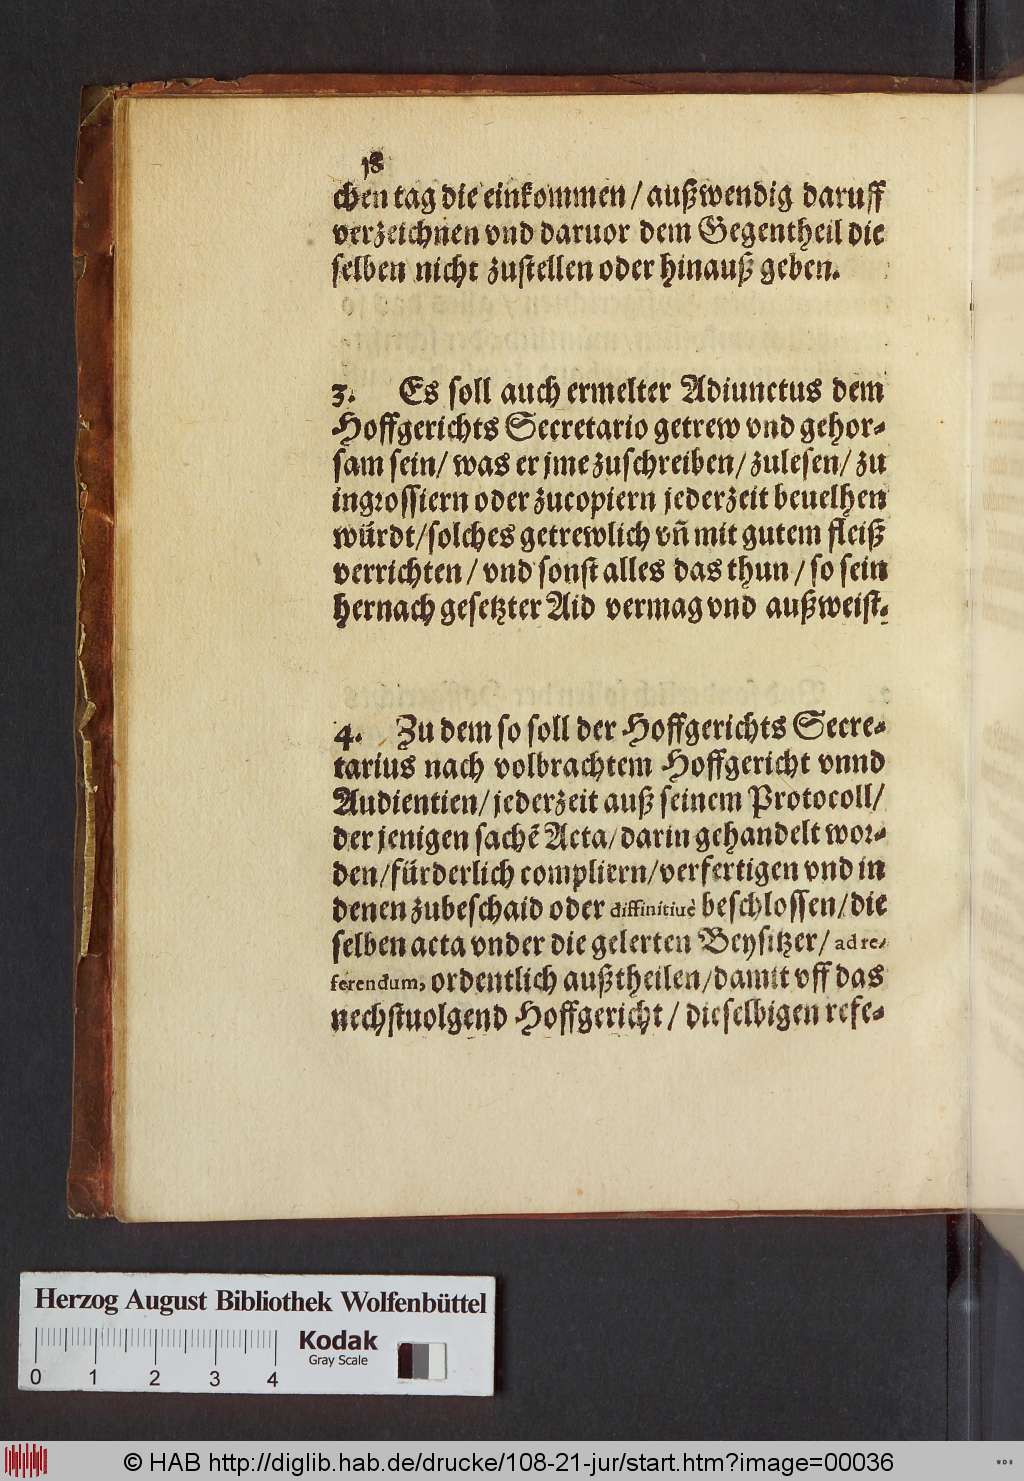 18
chen tag die einkommen / außwendig daruff
verzeichnen vnd daruor dem Gegentheil die
selben nicht zustellen oder hinauß geben.
3. Es soll auch ermelter Adiunctus dem
Hoffgerichts Secretario getrew vnd gehor-
sam sein/ was er jme zuschreiben/ zulesen/ zu
ingrossiern oder zucopiern jederzeit beuelhen
würdt/solches getrewlich vñ mit gutem fleiß
verrichten / vnd sonst alles das thun / so sein
hernach gesetzter Aid vermag vnd außweist.
4. Zu dem so soll der Hoffgerichts Secre-
tarius nach volbrachtem Hoffgericht vnnd
Audientien/ jederzeit auß seinem Protocoll/
der jenigen sachẽ Acta/ darin gehandelt wor-
den/fürderlich compliern/verfertigen vnd in
denen zubeschaid oder diffinitiuè beschlossen/die
selben acta vnder die gelerten Beysitzer/ ad re-
ferendum, ordentlich außtheilen/damit vff das
nechstuolgend Hoffgericht / dieselbigen refe-
Herzog August Bibliothek Wolfenbüttel
Kodak
Gray Scale
0 1 2 3 4
© HAB http://diglib.hab.de/drucke/108-21-jur/start.htm?image=00036